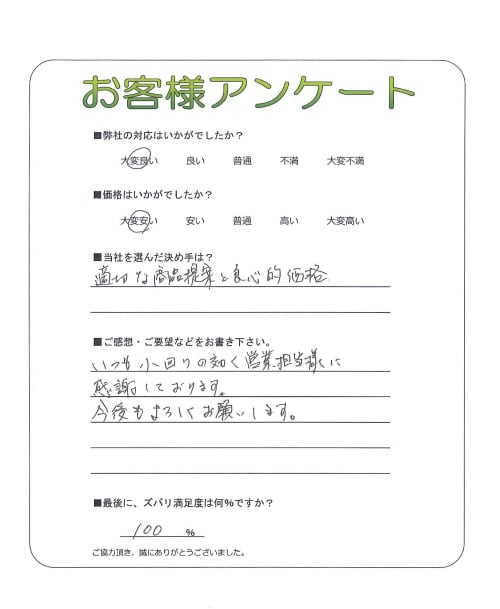 お客様アンケート
■弊社の対応はいかがでしたか？
大変良い 良い 普通 不満 大変不満
■価格はいかがでしたか？
大変安い 安い 普通 高い 大変高い
■当社を選んだ決め手は？
適切な商品提案と良心的価格
■ご感想・ご要望などをお書き下さい。
いつも小回りの効く営業担当様に
感謝しております。
今後もよろしくお願いします。
■最後に、ズバリ満足度は何%ですか？
100 %
ご協力頂き、誠にありがとうございました。